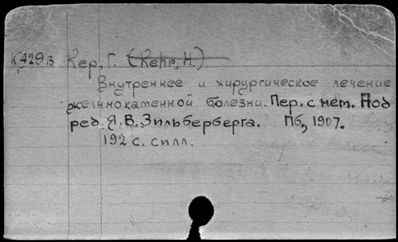 К429в Кер, Г. (Kehr, H.)
Внутреннее и хирургическое лечение
желчнокаменной болезни. Пер. с нем. Под
ред. Я. В. Зильберберга. Пб, 1907.
192 с. с илл.